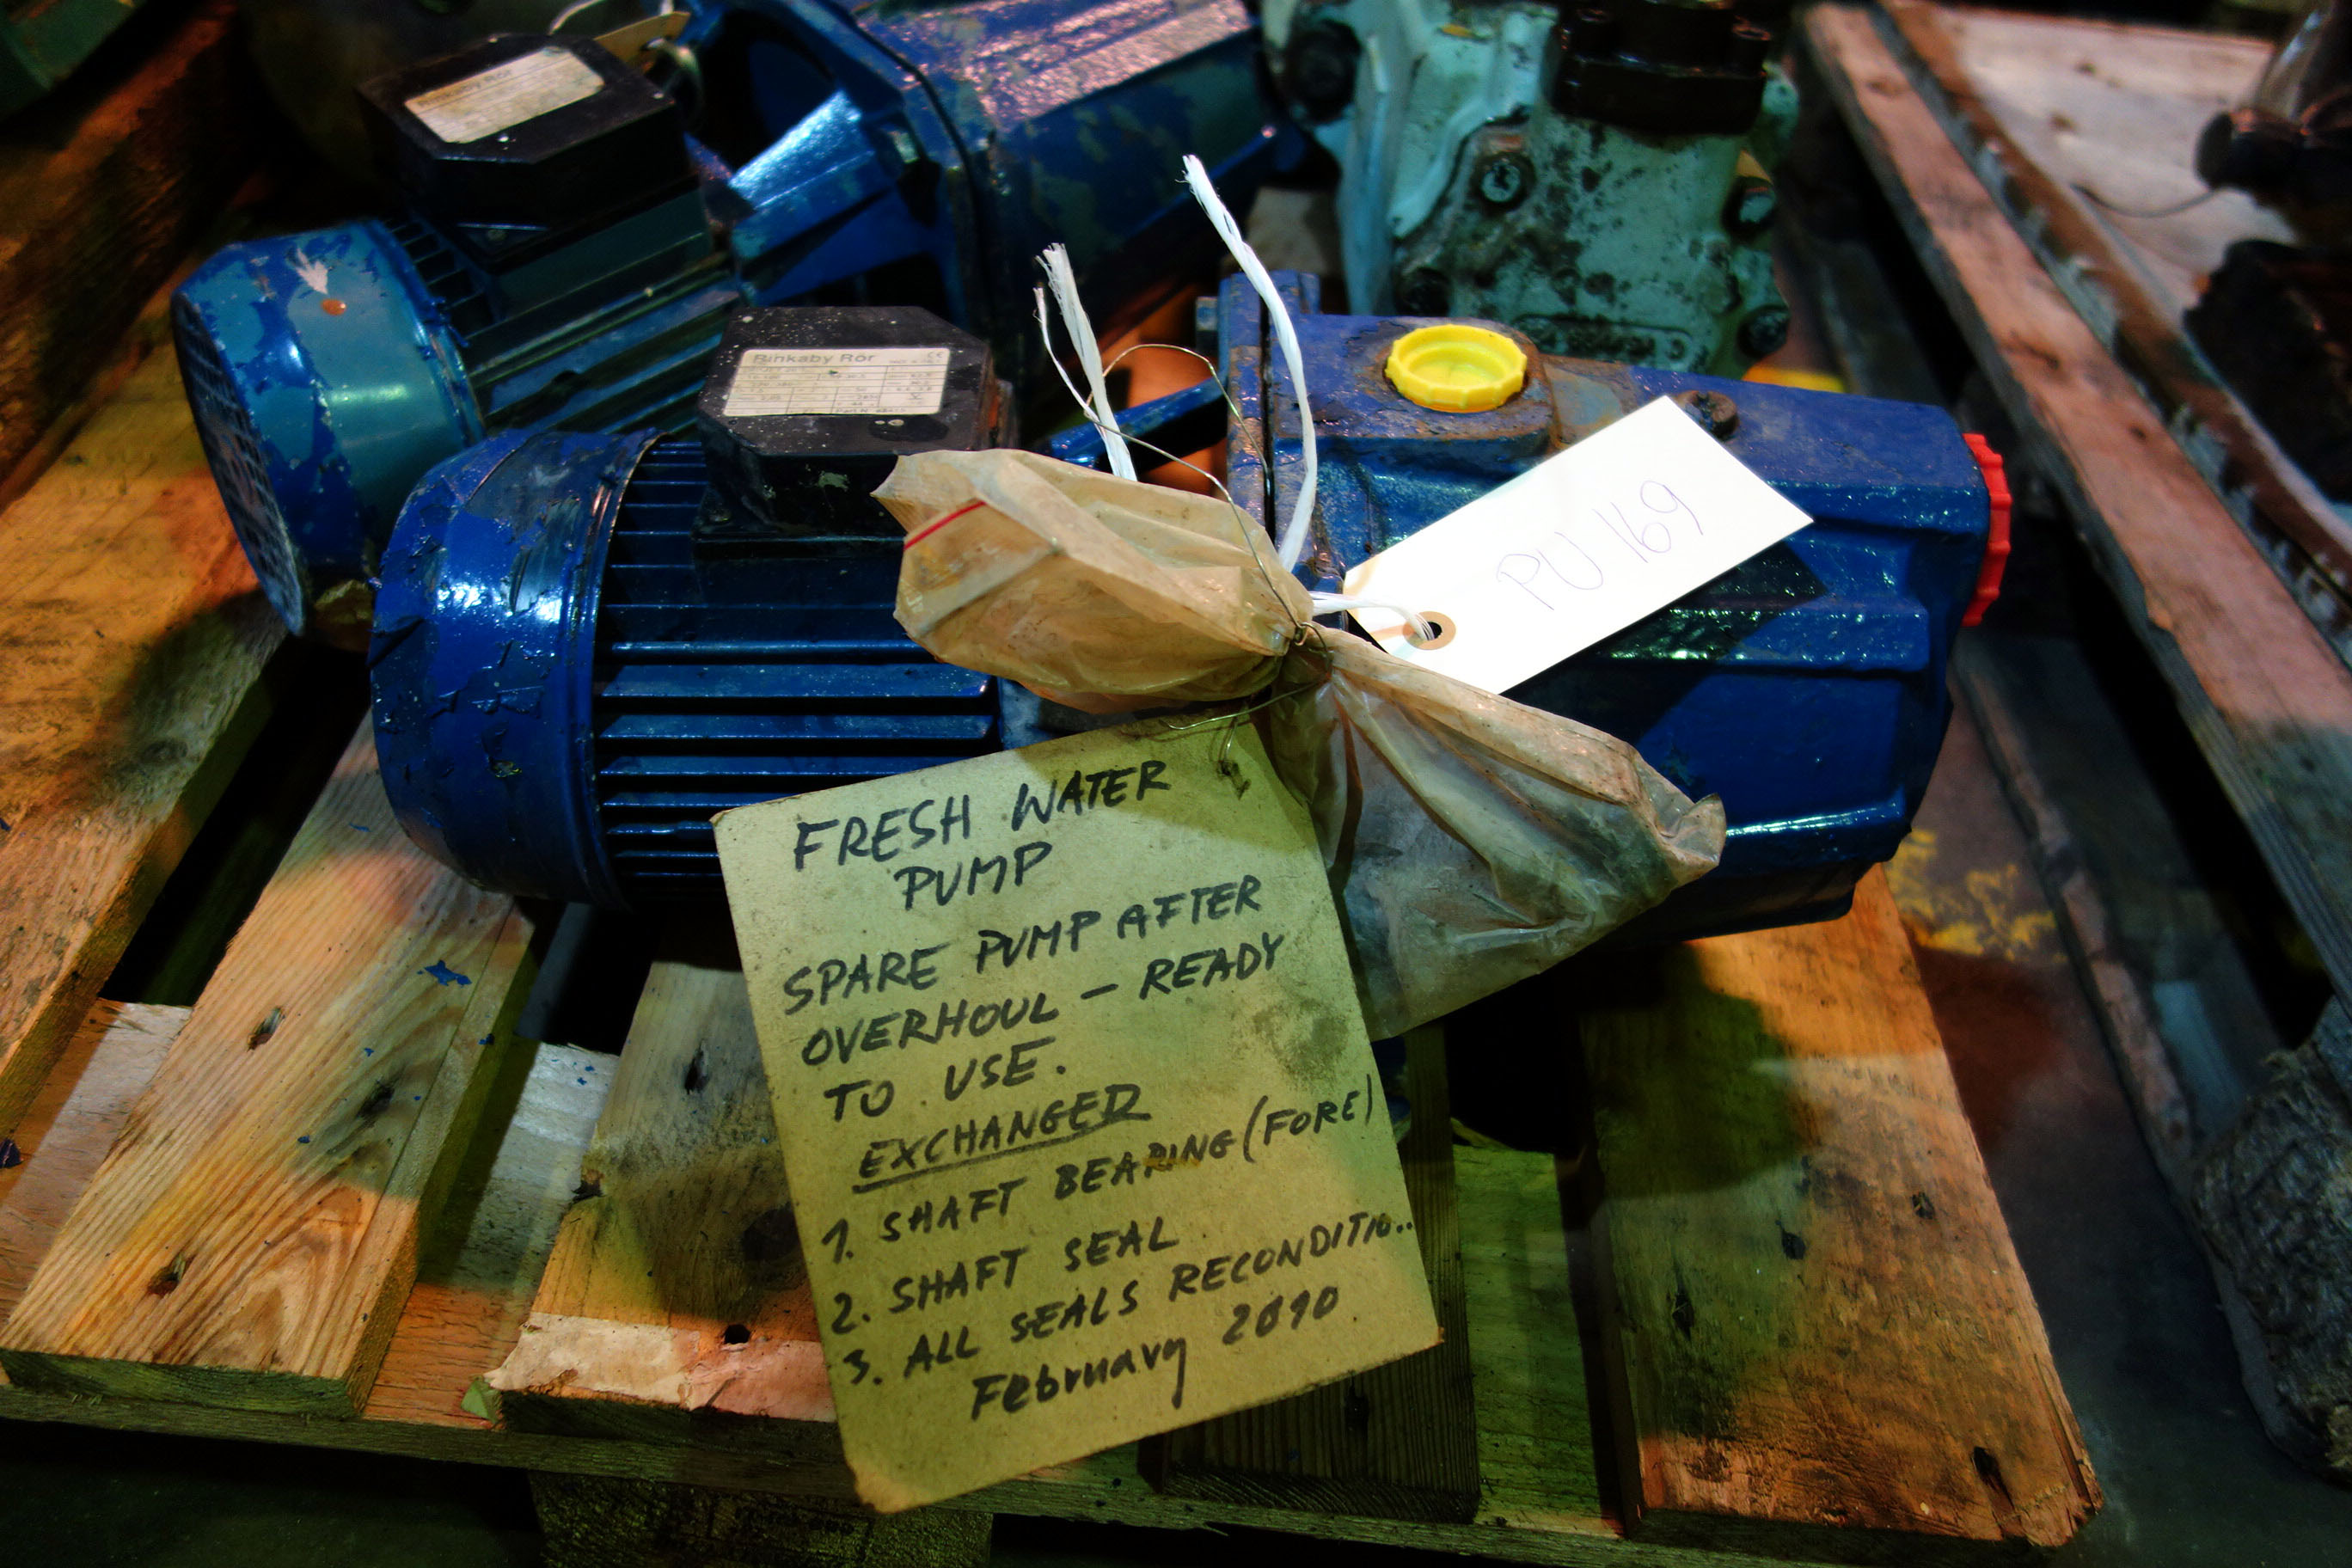 Rinkaby Rör
PU 169
FRESH WATER
PUMP
SPARE PUMP AFTER
OVERHOUL – READY
TO USE.
EXCHANGED
1. SHAFT BEARING (FORE)
2. SHAFT SEAL
3. ALL SEALS RECONDITIO..
February 2010